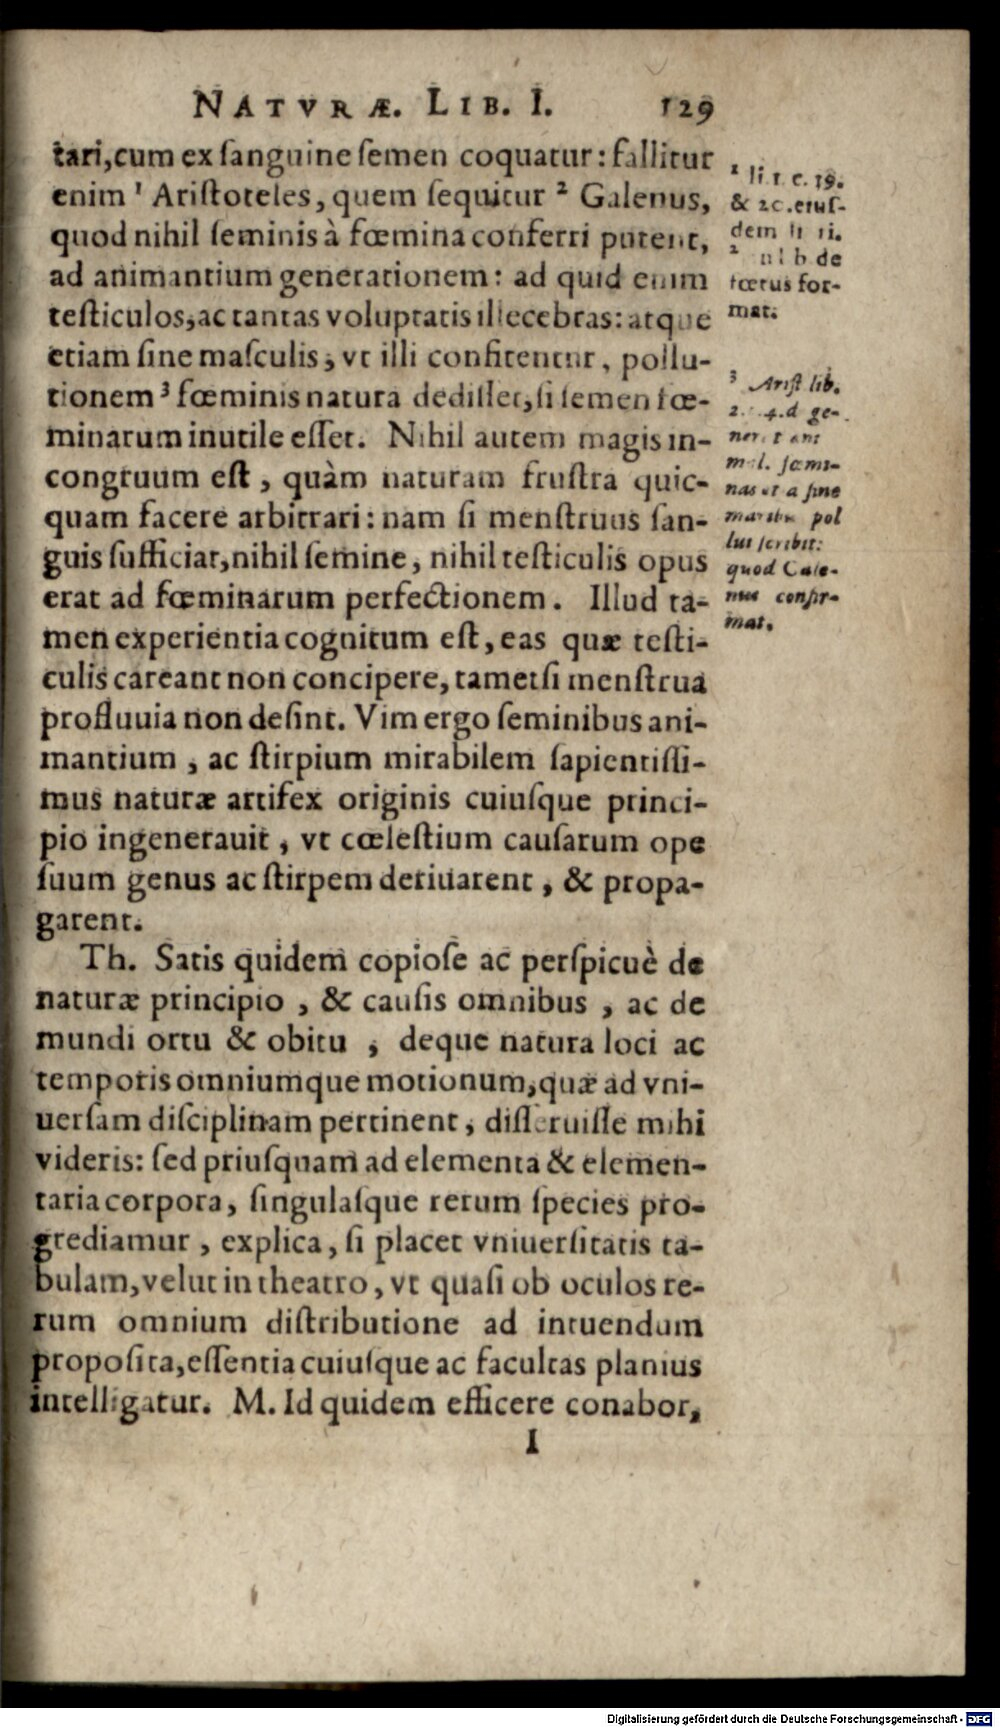 NATVRÆ. LIB. I. 129
tari, cum ex ſanguine ſemen coquatur: fallitur
enim ¹ Ariſtoteles, quem ſequitur ² Galenus,
quod nihil ſeminis à fœmina conferri putent,
ad animantium generationem: ad quid enim
teſticulos, ac tantas voluptatis illecebras: atque
etiam ſine maſculis, vt illi confitentur, pollu-
tionem ³ fœminis natura dediſſet, ſi ſemen fœ-
minarum inutile eſſet. Nihil autem magis in-
congruum eſt, quàm naturam fruſtra quic-
quam facere arbitrari: nam ſi menſtruus ſan-
guis ſufficiat, nihil ſemine, nihil teſticulis opus
erat ad fœminarum perfectionem. Illud ta-
men experientia cognitum eſt, eas quæ teſti-
culis careant non concipere, tametſi menſtrua
profluuia non deſint. Vim ergo ſeminibus ani-
mantium, ac ſtirpium mirabilem ſapientiſſi-
mus naturæ artifex originis cuiuſque princi-
pio ingenerauit, vt cœleſtium cauſarum ope
ſuum genus ac ſtirpem deriuarent, & propa-
garent.
Th. Satis quidem copioſe ac perſpicuè de
naturæ principio, & cauſis omnibus, ac de
mundi ortu & obitu, deque natura loci ac
temporis omniumque motionum, quæ ad vni-
uerſam diſciplinam pertinent, diſſeruiſſe mihi
videris: ſed priuſquam ad elementa & elemen-
taria corpora, ſingulaſque rerum ſpecies pro-
grediamur, explica, ſi placet vniuerſitatis ta-
bulam, velut in theatro, vt quaſi ob oculos re-
rum omnium diſtributione ad intuendum
propoſita, eſſentia cuiuſque ac facultas planius
intelligatur. M. Id quidem efficere conabor,
I
¹ li. 1. c. 19.
& 20. eiuſ-
dem li
² lib de
fœtus for-
mat.
³ Ariſt lib.
2. 4. d ge-
ner.
fœmi-
nas ſine
maribus pol
lui ſcribit:
quod Gale-
nus confir-
mat.
Digitalisierung gefördert durch die Deutsche Forschungsgemeinschaft - DFG